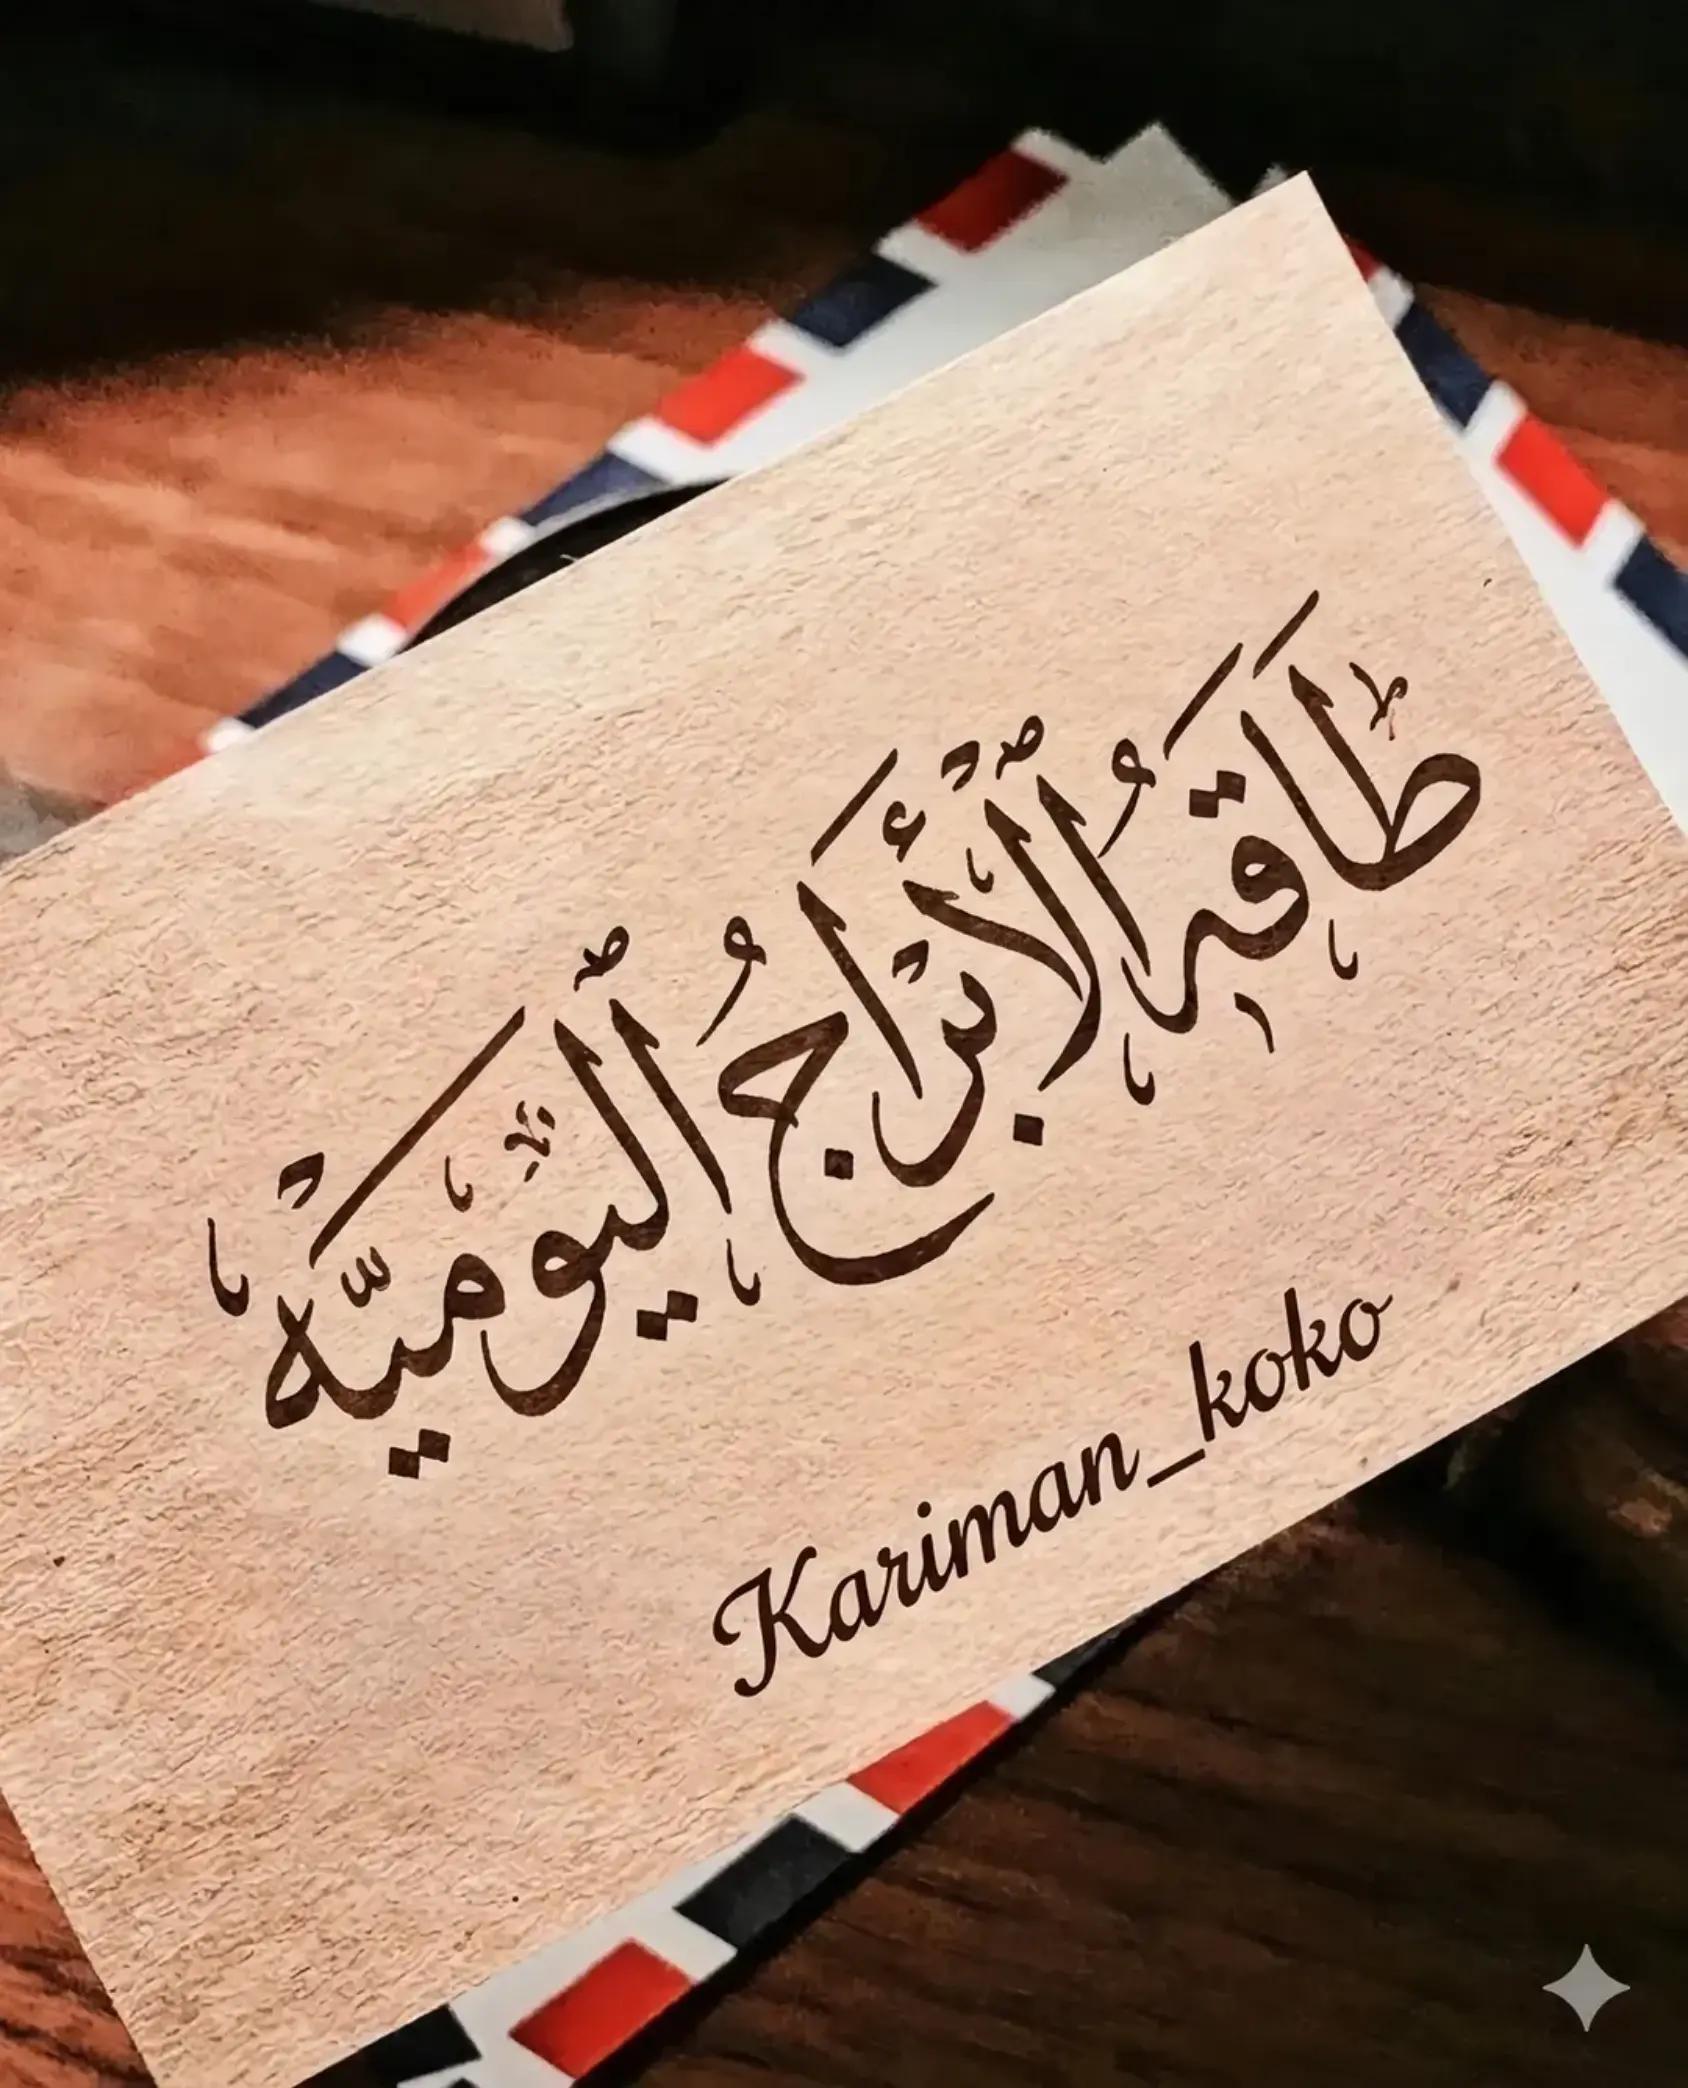 طَاقَةُ الْأَبْرَاجُ الْيَوْمِيَّه
Kariman_koko